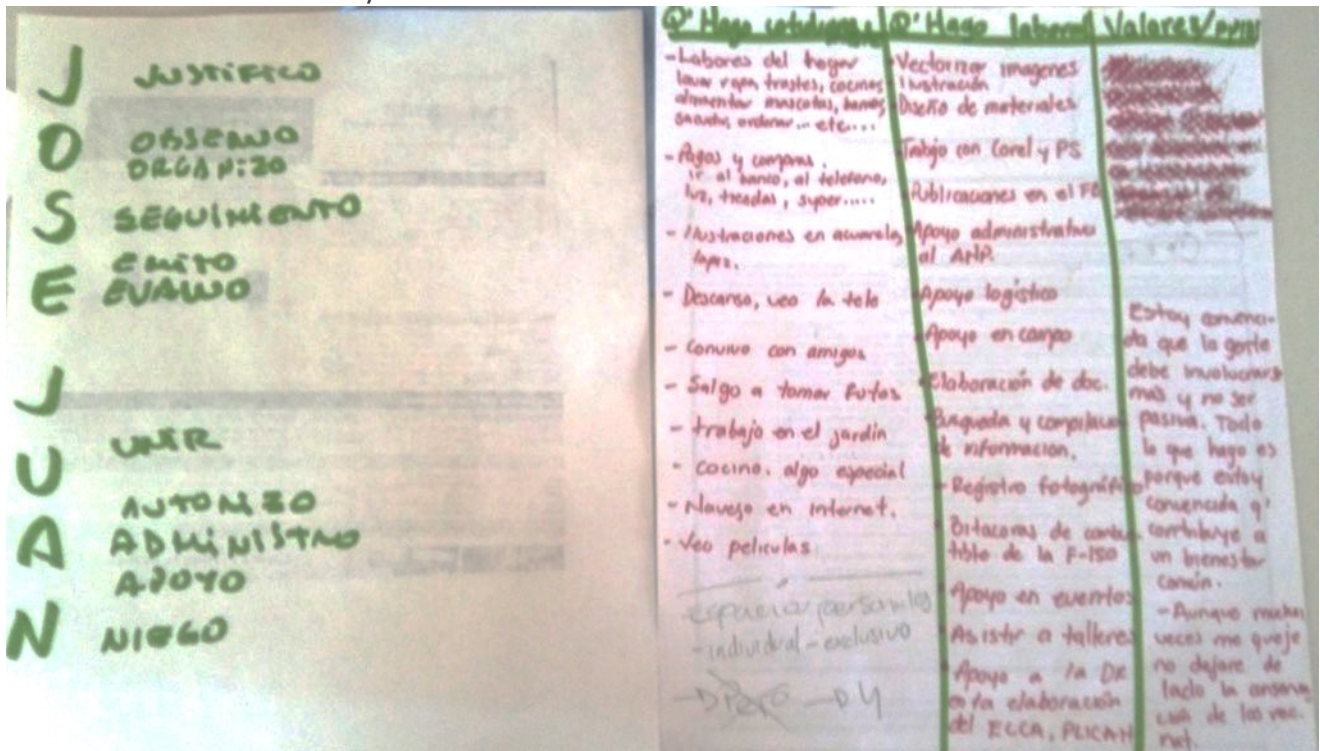 J JUSTIFICO
O OBSERVO
ORGANIZO
S SEGUIMIENTO
E EMITO
EVALUO
J
U UNIR
A AUTORIZO
ADMINISTRO
APOYO
N NIEGO
Q' Hago cotidiano
- Labores del hogar
lavar ropa, trastes, cocinar
alimentar mascotas,
ordenar... etc....
- Pagos y compras.
ir al banco, al telefono,
luz, tiendas, super.....
- Ilustraciones en acuarela,
lapiz.
- Descanso, veo la tele
- Convivo con amigos
- Salgo a tomar fotos
- trabajo en el jardin
- cocino. algo especial
- Navego en internet.
- Veo peliculas.
espacios personales
- individual - exclusivo
Q' Hago laboral
Vectorizar imagenes
Ilustración
Diseño de materiales
Trabajo con Corel y PS
Publicaciones en el FB
Apoyo administrativo
al ANP.
Apoyo logístico
Apoyo en campo
Elaboración de doc.
Busqueda y compilacion
de informacion.
- Registro fotográfico
Bitacoras de combus-
tible de la F-150
Apoyo en eventos
Asistir a talleres
Apoyo a la DR
en la elaboración
del ECCA, PLICAN
Valores/
Estoy convenci-
da que la gente
debe involucrarse
mas y no ser
pasiva. Todo
lo que hago es
porque estoy
convencida q'
contribuye a
un bienestar
común.
- Aunque muchas
veces me quejo
no dejare de
lado la
de los rec.
nat.